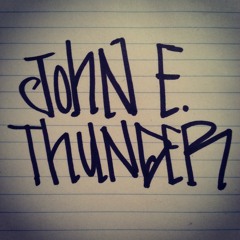 JOHN E.
THUNDER